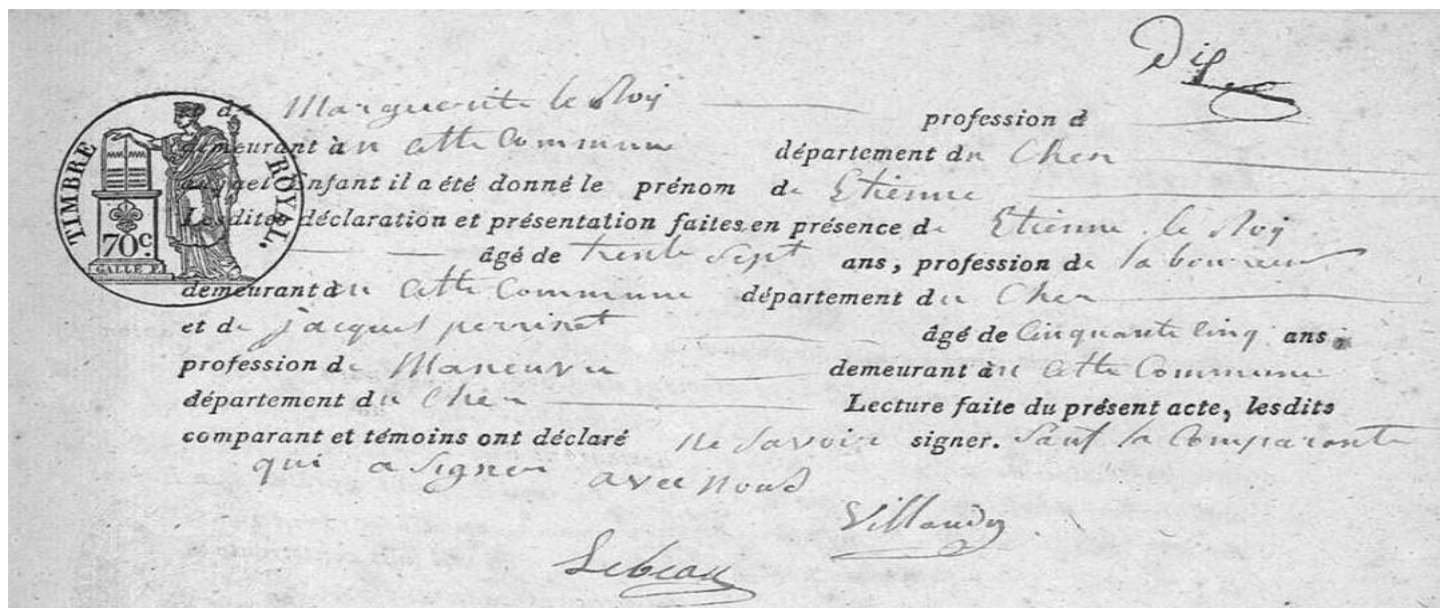 de Marguerite le Roy profession d
demeurant à en cette Commune département du Cher
auquel Enfant il a été donné le prénom de Etienne
Lesdites déclaration et présentation faites en présence de Etienne le Roy
âgé de trente Sept ans, profession de laboureur
demeurant à en cette Commune département du Cher
et de jacques perrinet âgé de Cinquante Cinq ans,
profession de Maneuvre demeurant à en cette Commune
département du Cher Lecture faite du présent acte, lesdits
comparant et témoins ont déclaré ne Savoir signer. Sauf la Comparante
qui a Signer avec nous
Villaudy
Lebeau
TIMBRE ROYAL.
70c.
GALLE F.